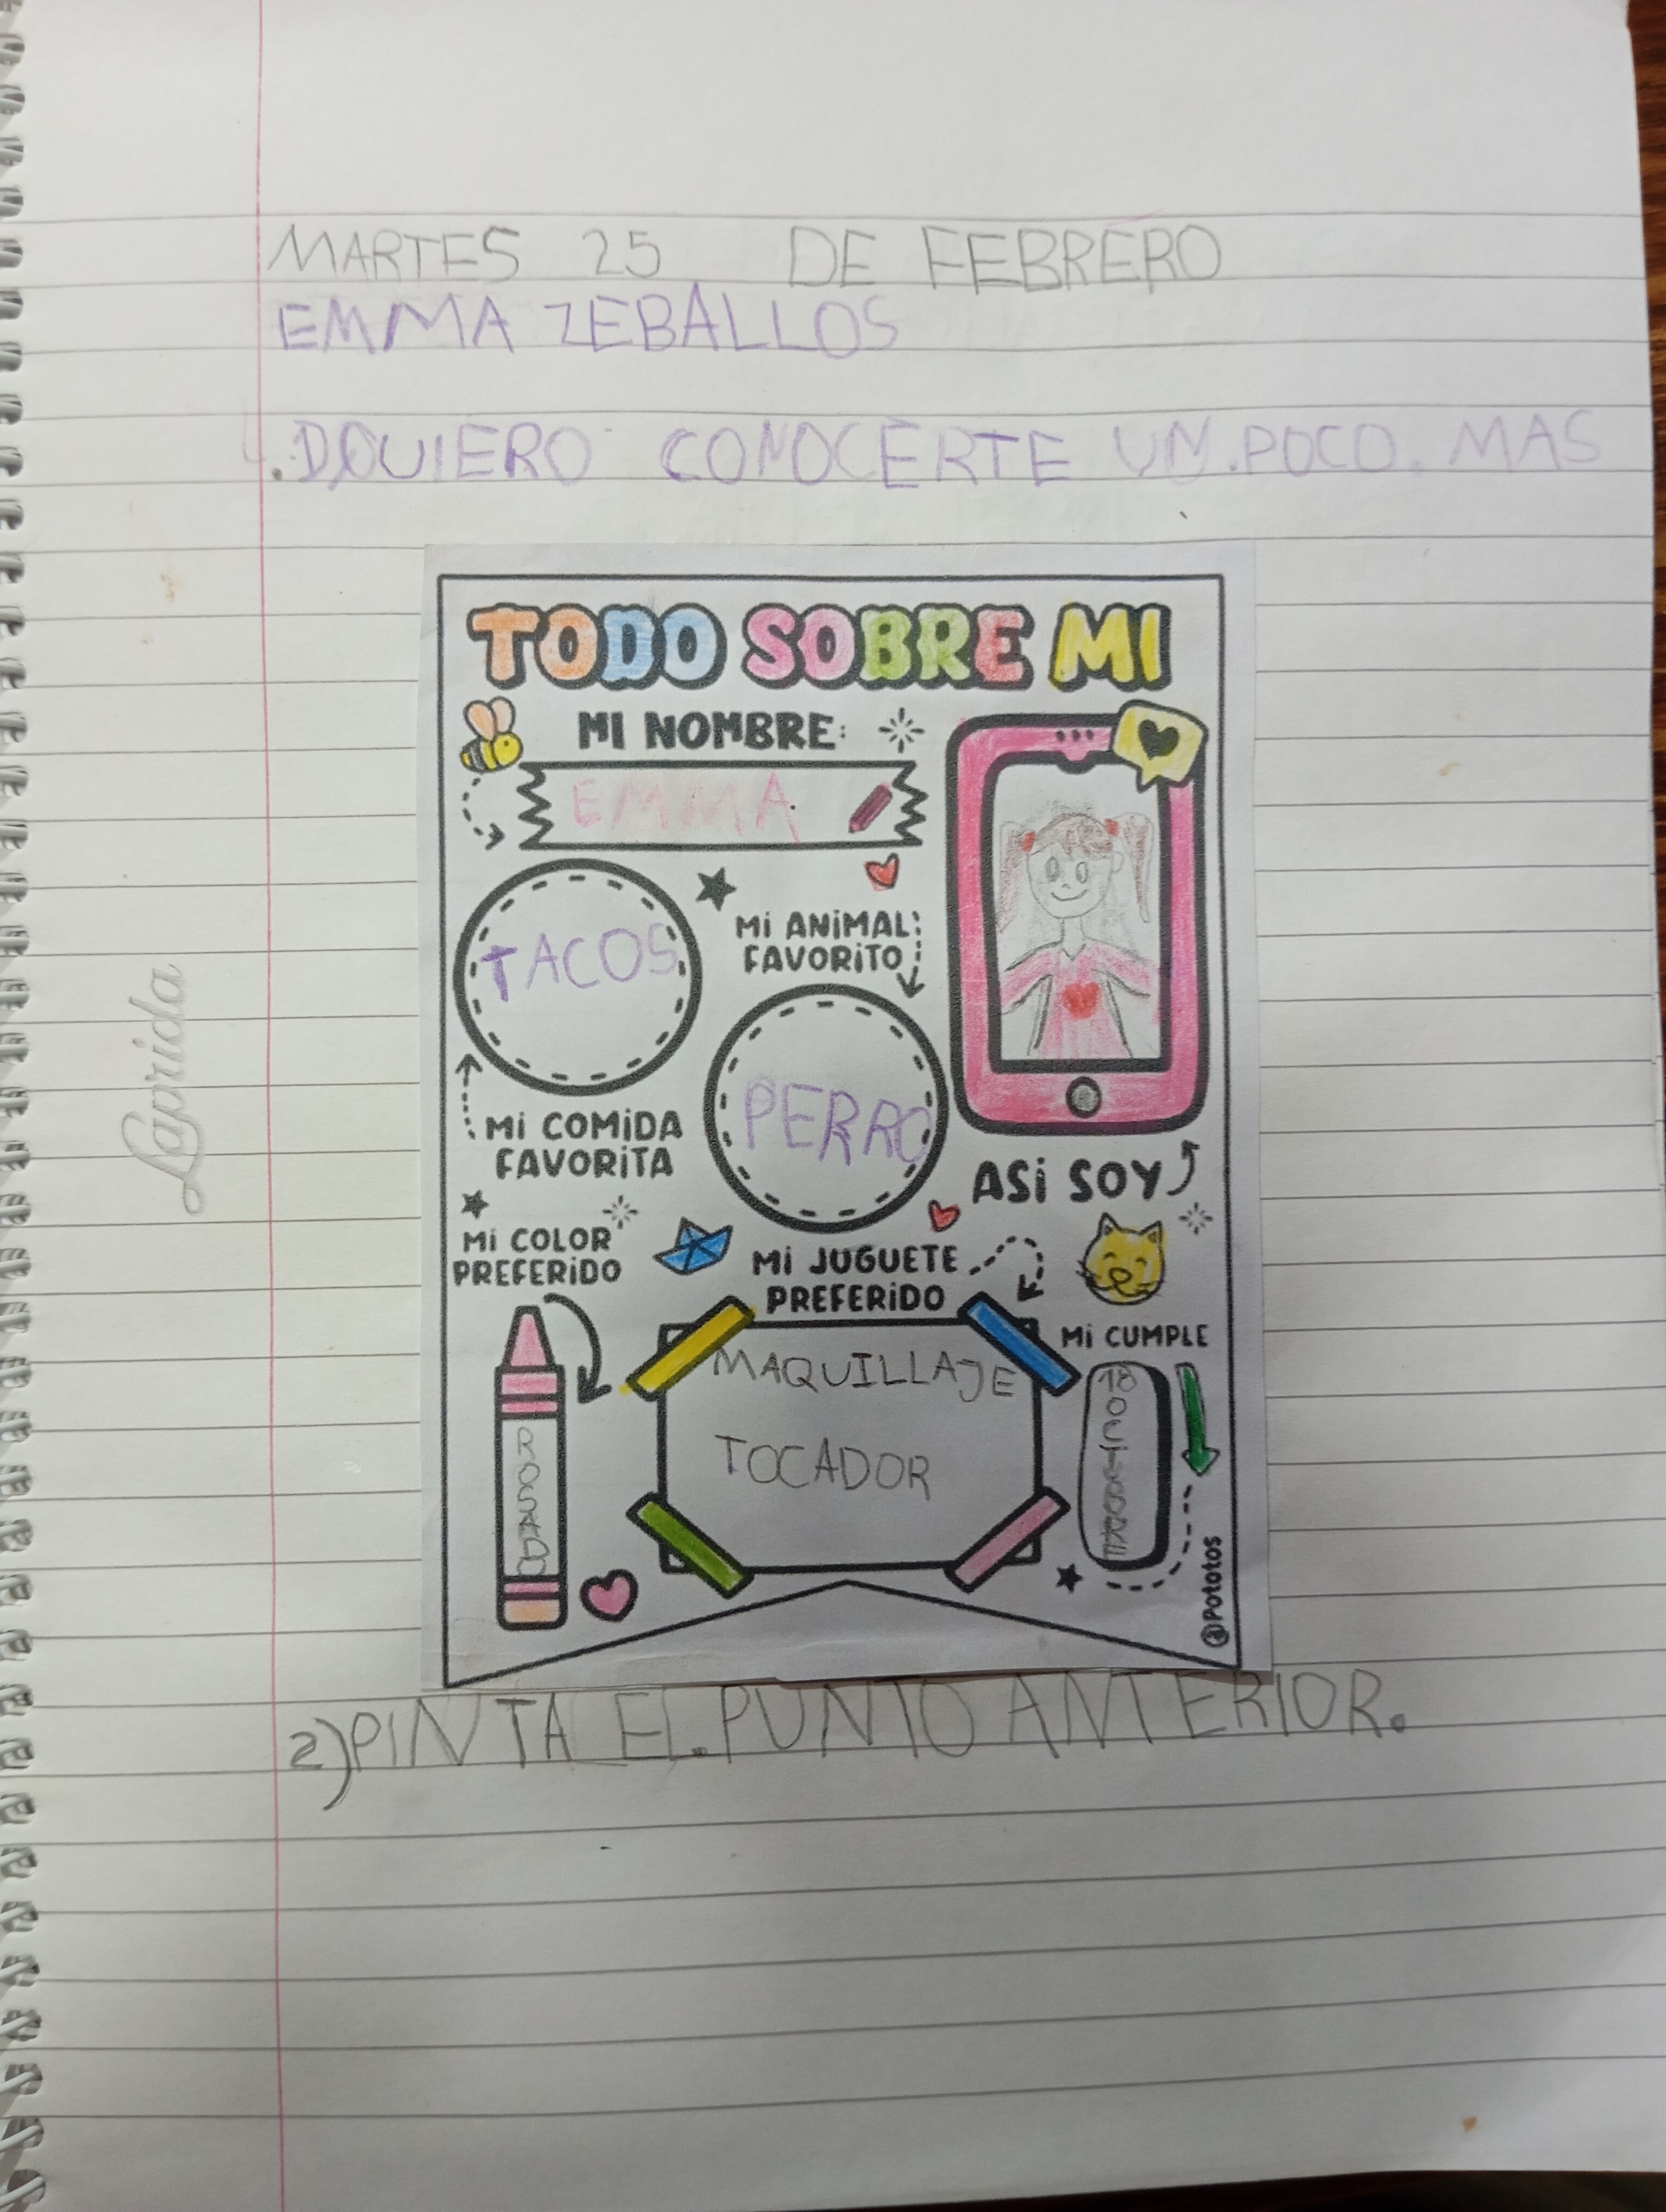 MARTES 25 DE FEBRERO
EMMA ZEBALLOS
.D QUIERO CONOCERTE UN.POCO. MAS
TODO SOBRE MI
MI NOMBRE:
EMMA
TACOS
MI COMIDA
FAVORITA
MI ANIMAL
FAVORITO
PERRO
ASI SOY
MI COLOR
PREFERIDO
ROSADO
MI JUGUETE
PREFERIDO
MAQUILLAJE
TOCADOR
MI CUMPLE
18
@Pototos
2)PINTA EL.PUNTO ANTERIOR.
Laprida